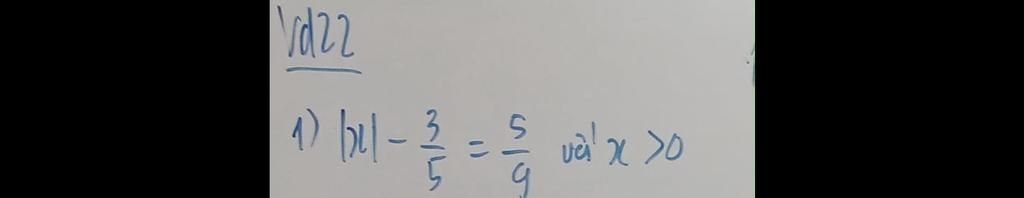 Vd22
1) |x| - 3/5 = 5/9 với x > 0